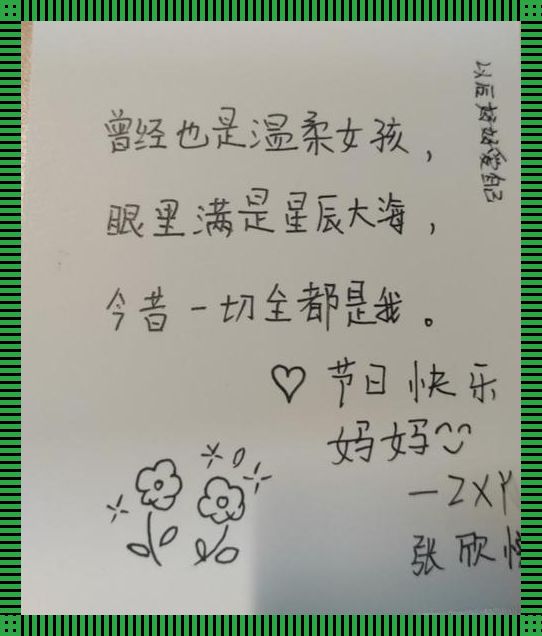 以后好好爱自己
曾经也是温柔女孩，
眼里满是星辰大海，
今昔一切全都是我。
♡节日快乐
妈妈
一ZXY
张欣